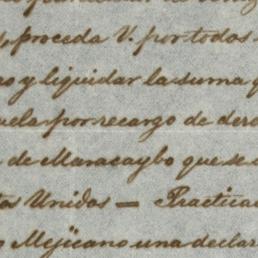 , proceda V. por todos
ro y liquidar la suma q
uela por recargo de dere
de Maracaybo que se
tos Unidos — Practica
o Mejicano una declar